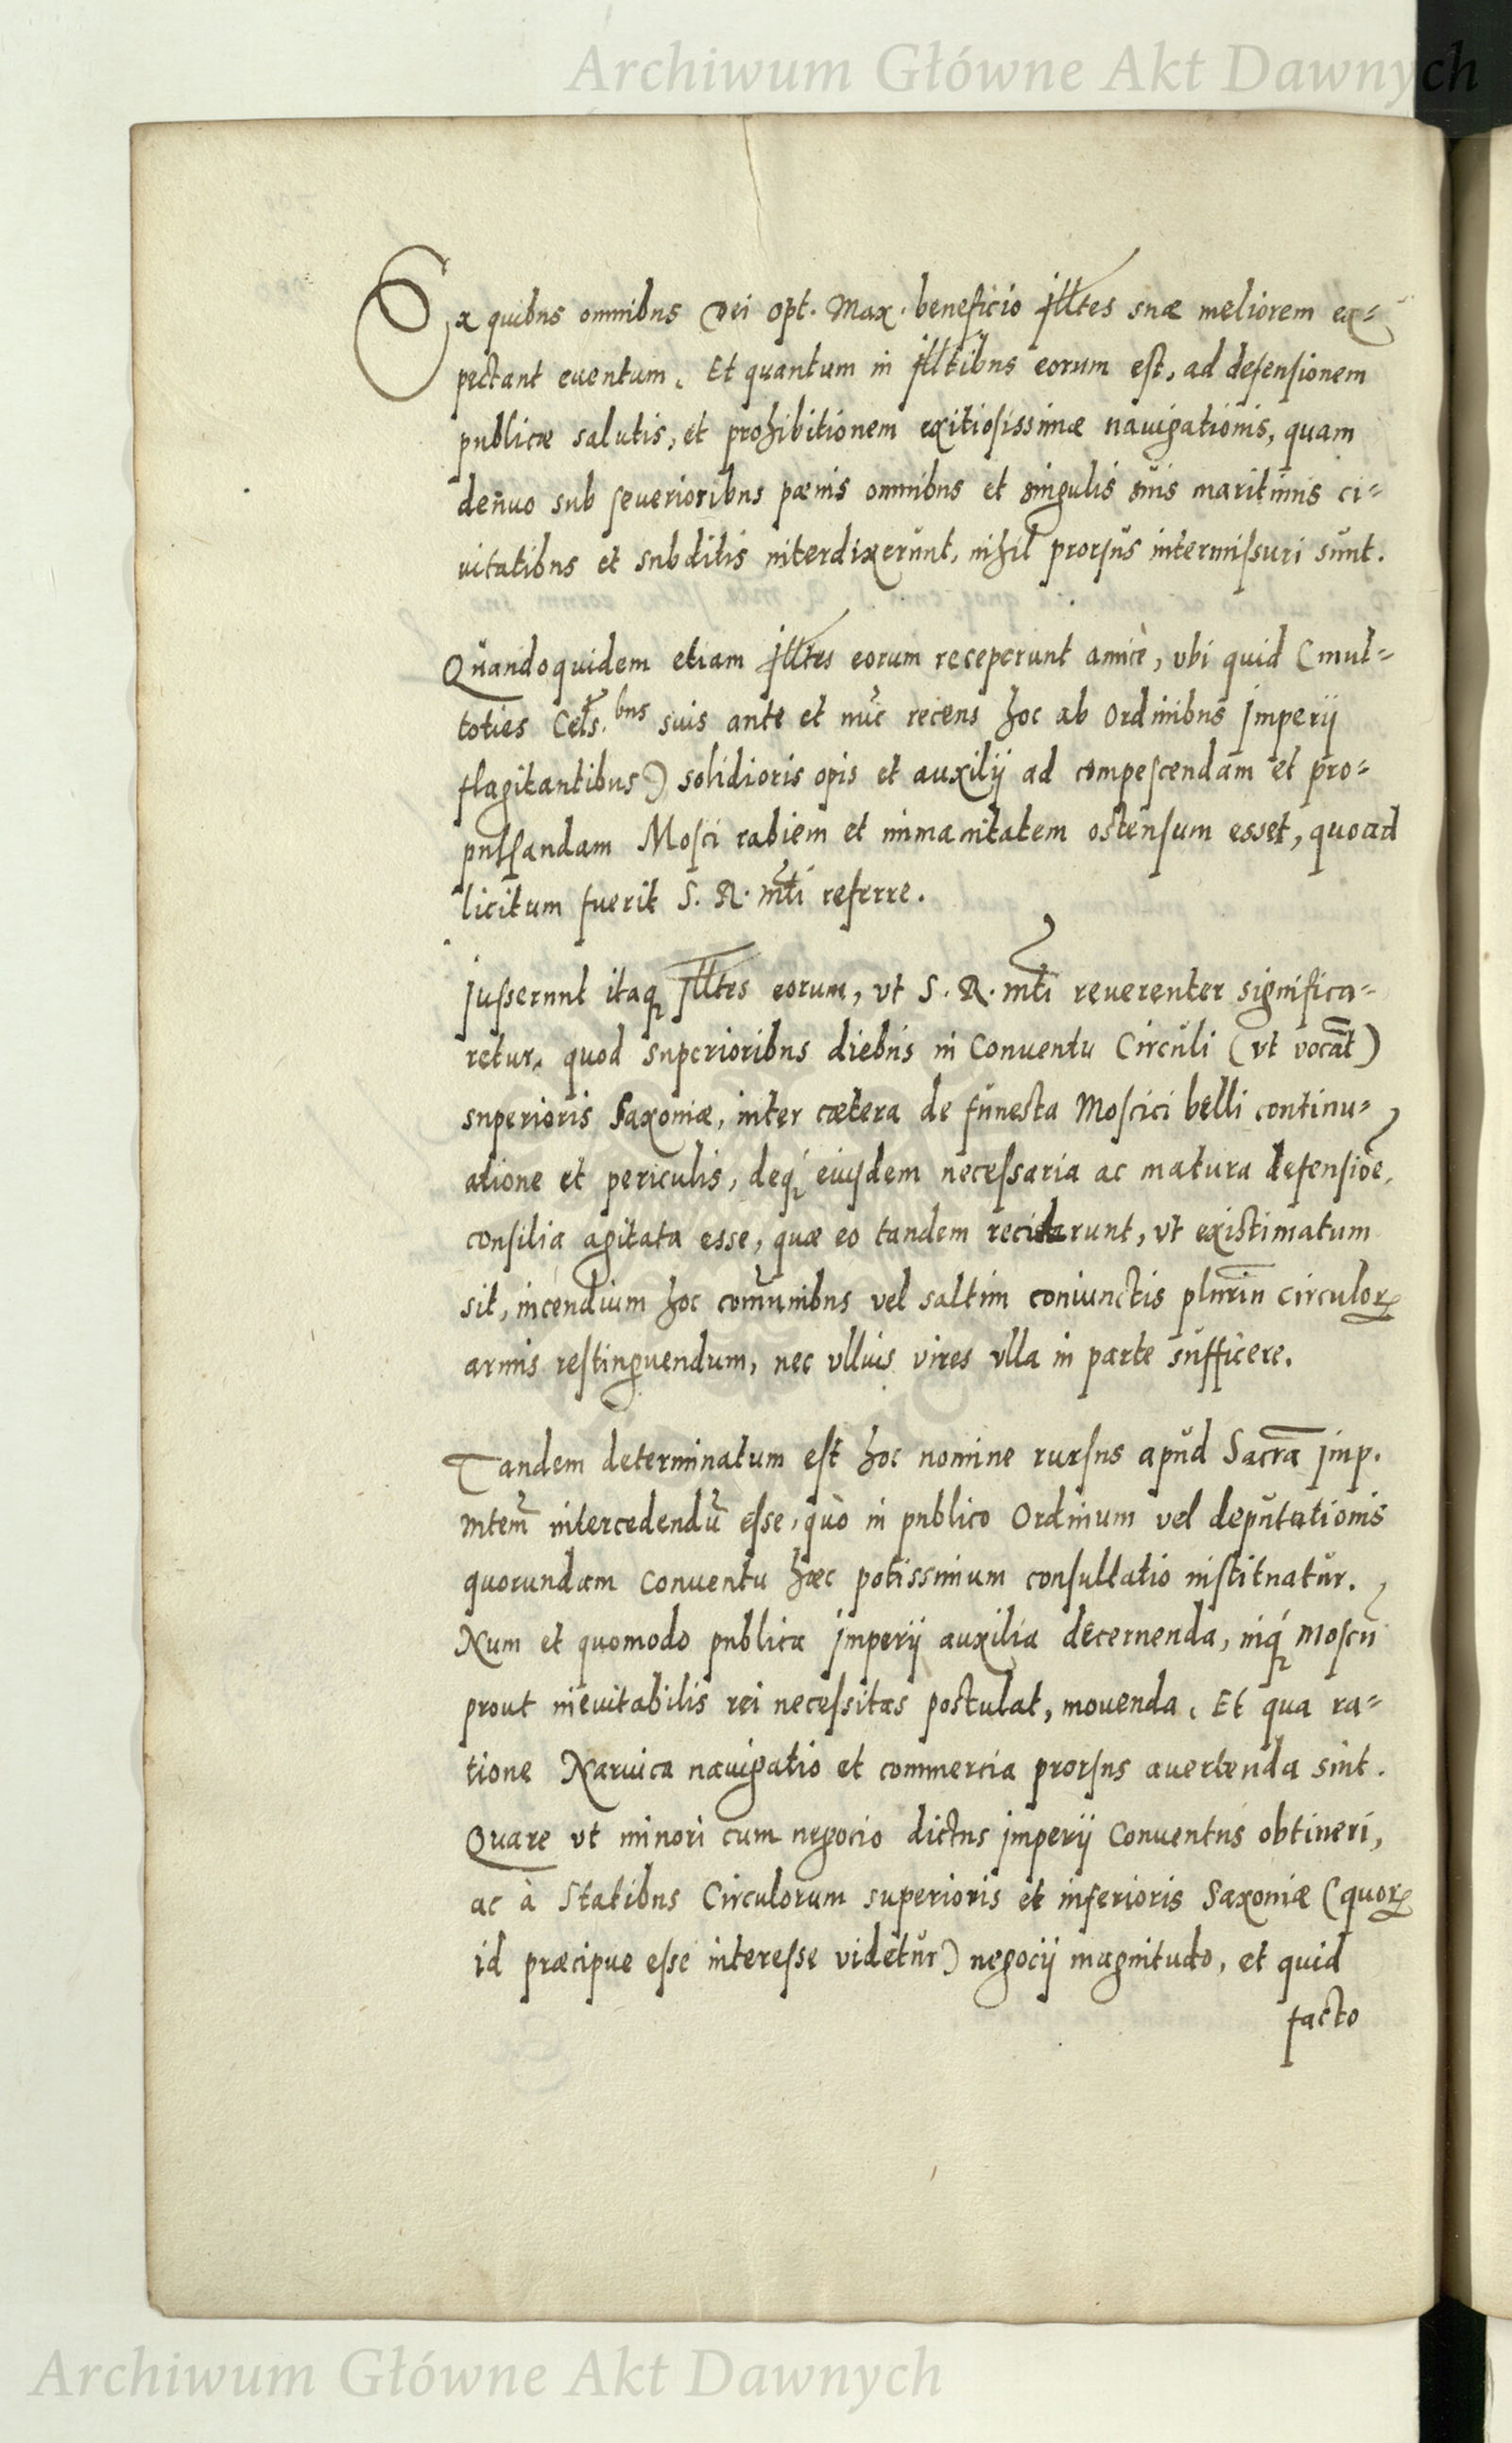 Archiwum Główne Akt Dawnych
Ex quibus omnibus Dei Opt. Max. beneficio Jlltes suæ meliorem ex=
pectant euentum. Et quantum in Jlltibus eorum est, ad defensionem
publicæ salutis, et prohibitionem exitiosissimæ nauigationis, quam
denuo sub seuerioribus pœnis omnibus et singulis suis maritimis ci=
uitatibus et subditis interdixerunt, nihil prorsus intermissuri sunt.
Quandoquidem etiam Jlltes eorum receperunt amicè, vbi quid (mul=
toties Cels.bus suis ante et nuc recens hoc ab Ordinibus Jmperij
flagitantibus) solidioris opis et auxilij ad compescendam et pro=
pulsandam Mosci rabiem et immanitatem ostensum esset, quoad
licitum fuerit S. R. mti referre.
Jusserunt itaq Jlltes eorum, vt S. R. mti reuerenter significa=
retur, quod superioribus diebus in Conuentu Circuli (vt vocāt)
superioris Saxoniæ, inter cætera de funesta Moscici belli continu=
atione et periculis, deq eiusdem necessaria ac matura defensiōe,
consilia agitata esse, quæ eo tandem recidarunt, vt existimatum
sit, incendium hoc comunibus vel saltim coniunctis plurim circulor
armis restinguendum, nec vllius vires vlla in parte sufficere.
Tandem determinatum est hoc nomine rursus apud Sacrā Jmp.
mtem intercedendū esse, quò in publico Ordinum vel deputationis
quorundam Conuentu hæc potissimum consultatio instituatur.
Num et quomodo publica Jmperij auxilia decernenda, inq Moscū
prout ineuitabilis rei necessitas postulat, mouenda. Et qua ra=
tione Naruica nauigatio et commercia prorsus auertenda sint.
Quare vt minori cum negocio dictus Jmperij Conuentus obtineri,
ac à Statibus Circulorum superioris et inferioris Saxoniæ (quor
id præcipue esse interesse videtur) negocij magnitudo, et quid
facto
Archiwum Główne Akt Dawnych